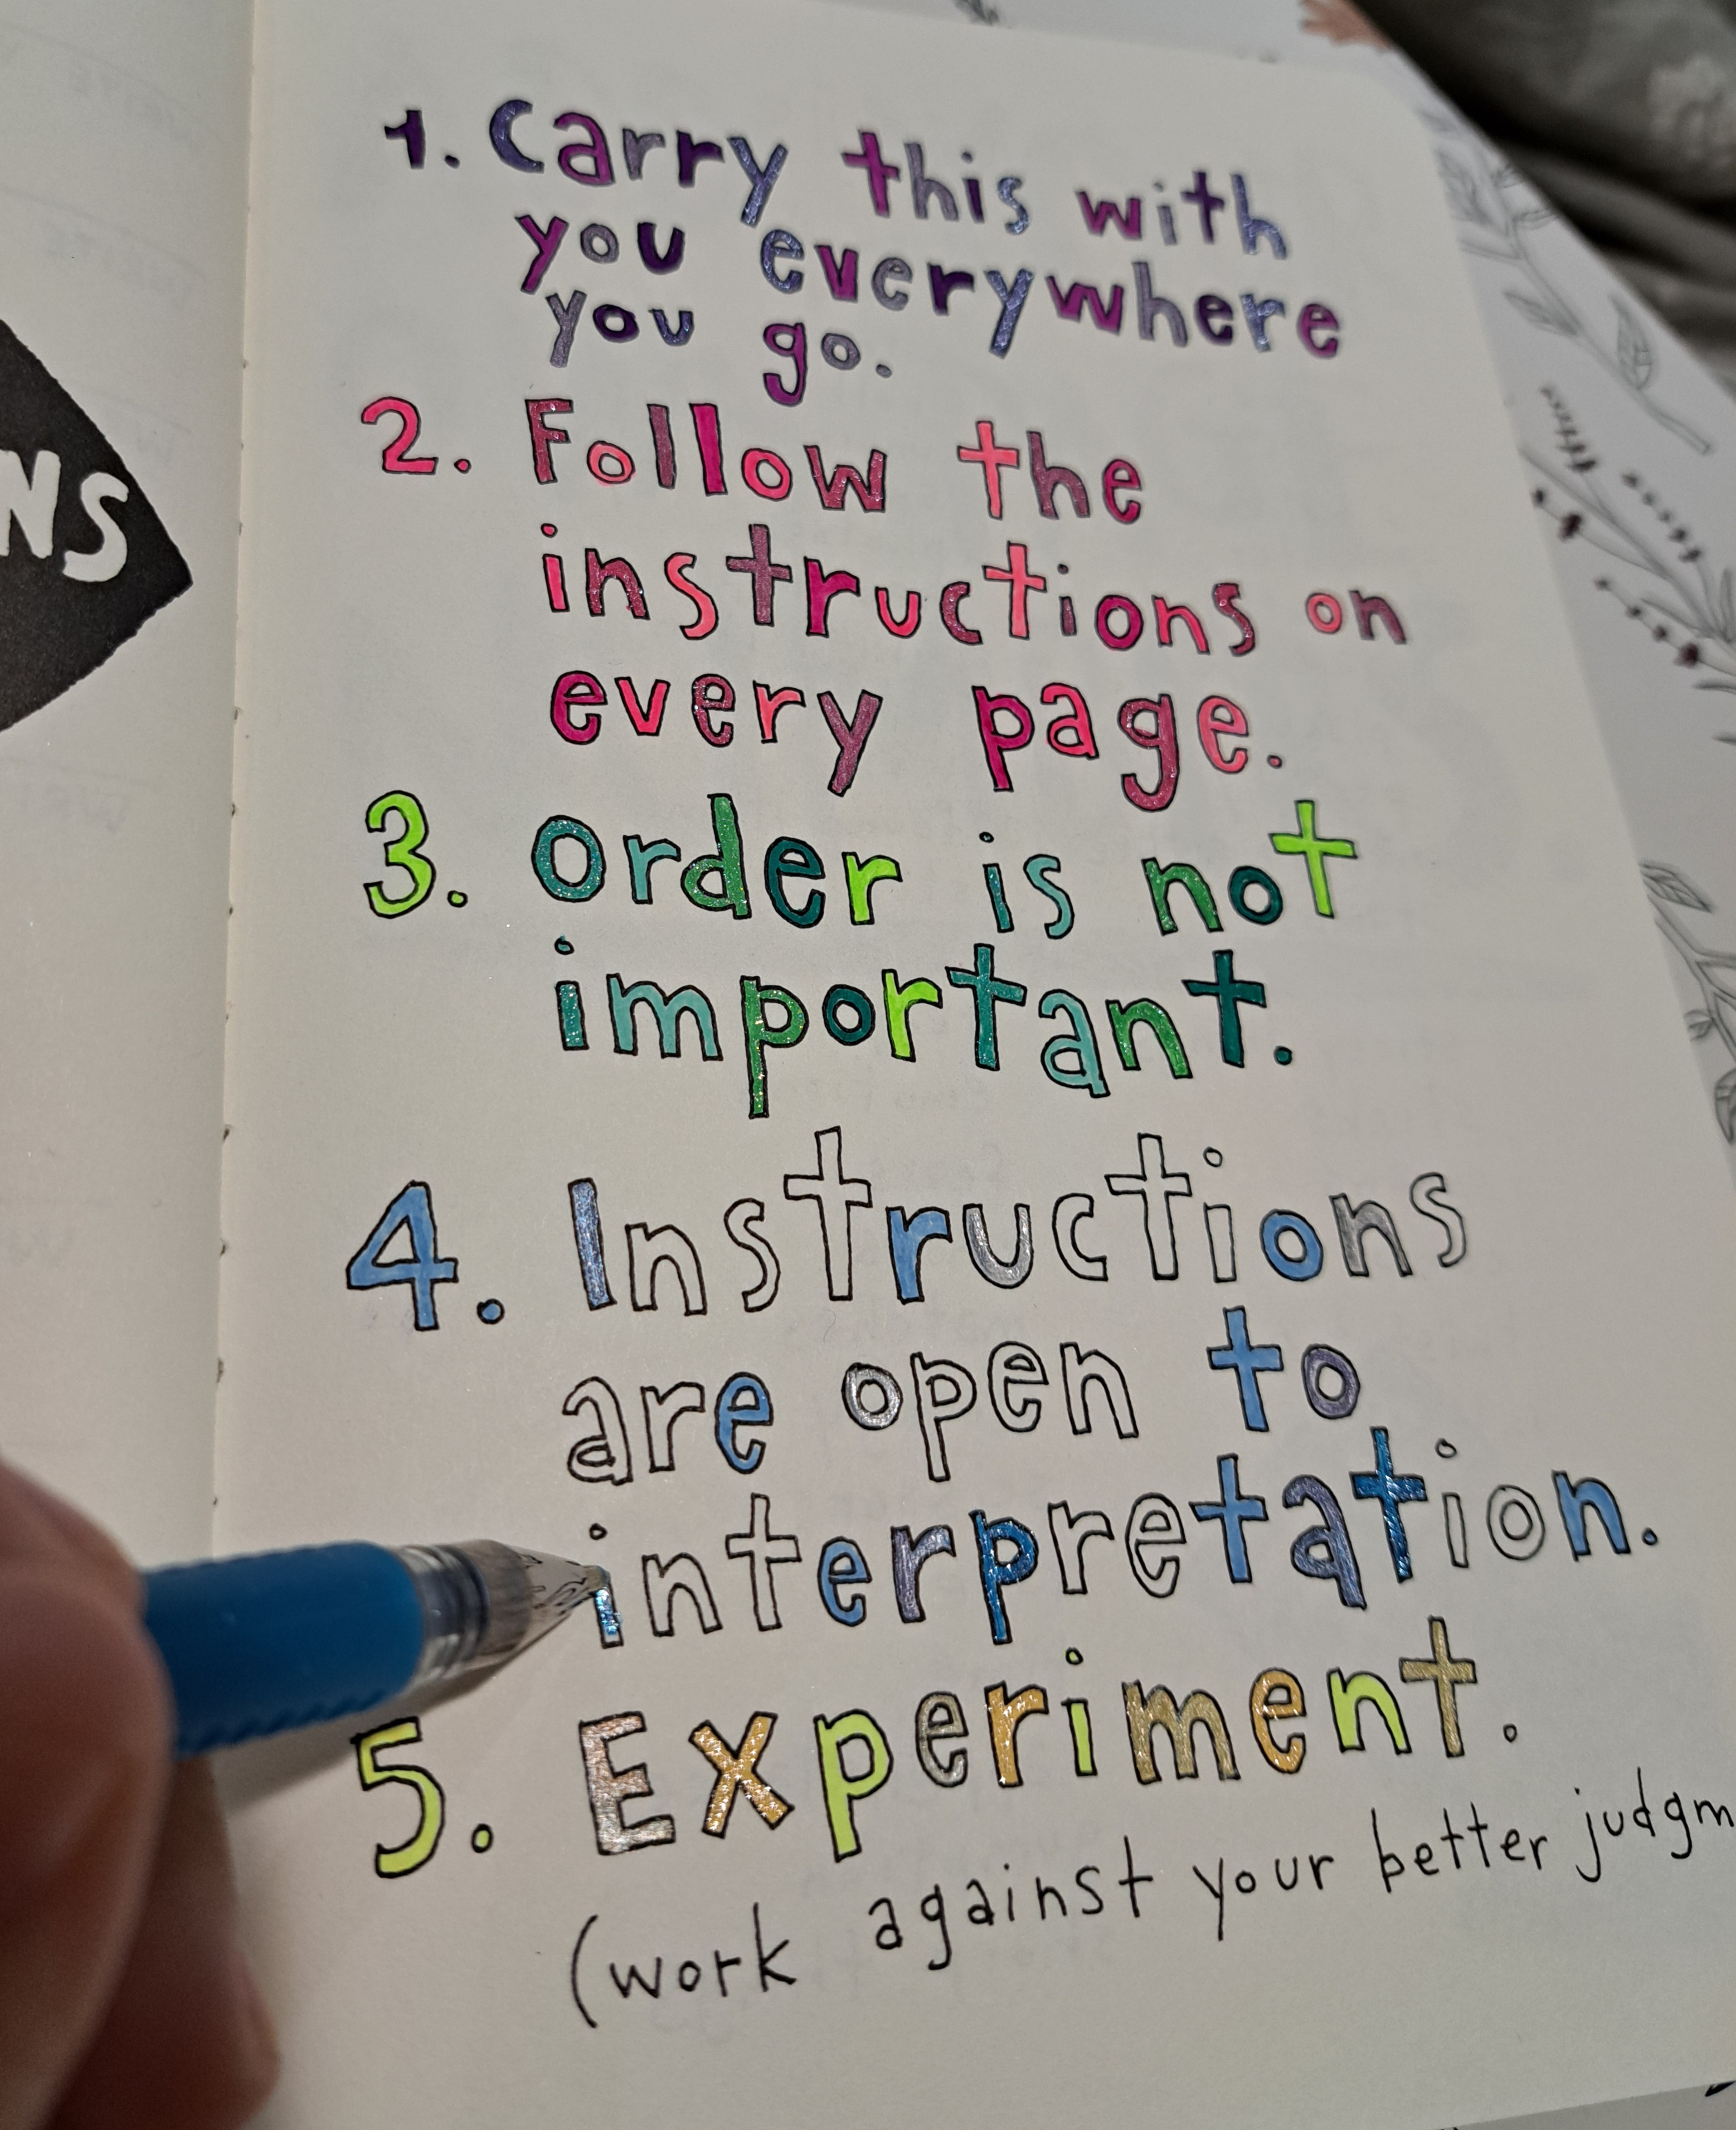 NS
1. Carry this with
you everywhere
you go.
2. Follow the
instructions on
every page.
3. Order is not
important.
4. Instructions
are open to
interpretation.
5. Experiment.
(work against your better judgm